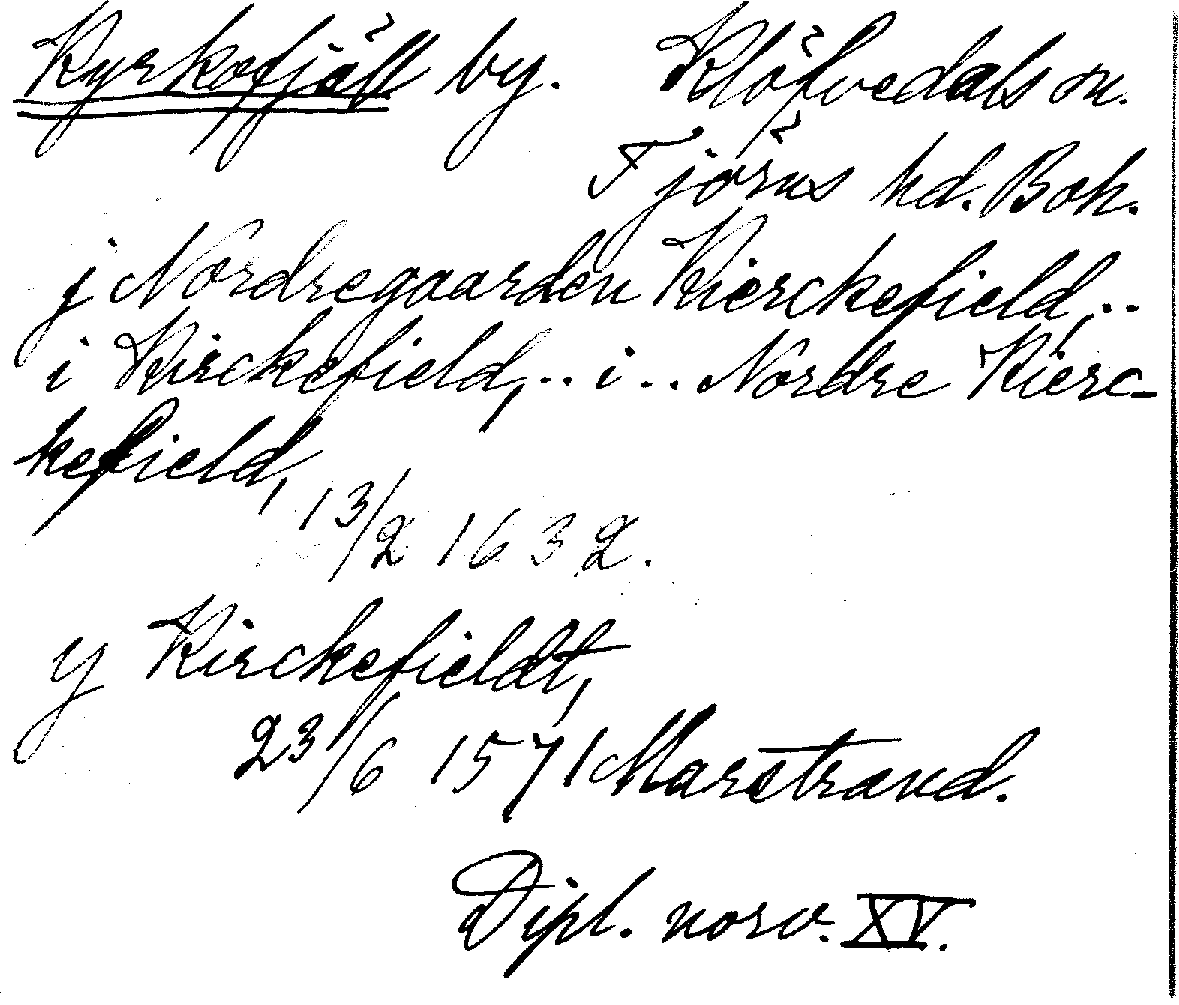 Kyrkefjäll by. Klöfvedals sn.
Tjörns hd. Boh.
j Nordregaarden Kierckefield,..
i Kirckefield,.. i .. Nordre Kierc-
kefield,
13/2 1632.
y Kirckefieldt,
23/6 1571 Marstrand.
Dipl. norv. XV.